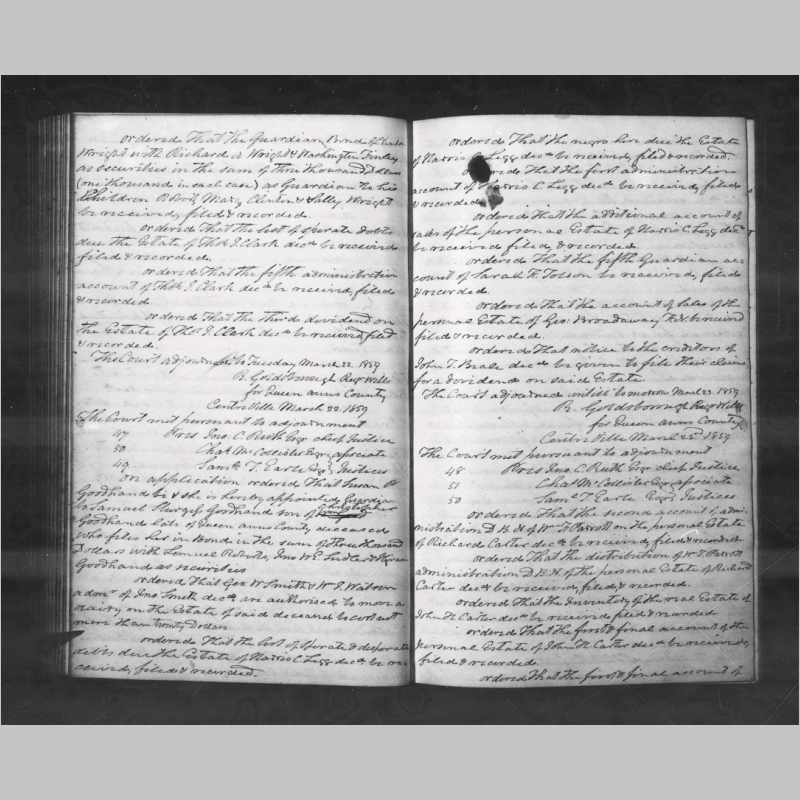 ordered That the Guardian Bond of
Wright with Richard A Wright & Washington Finley
as securities in the sum of three thousand Dollars
(one thousand in each case) as Guardian to his
Children Mary Clinton & Sally Wright
be received, filed & recorded.
ordered that the list of sperate debts
due the Estate of Thos J. Clark decd be received
filed & recorded.
ordered That the fifth administration
account of Thos J. Clark decd be received, filed
& recorded
ordered That the third dividend on
the Estate of Thos J. Clark decd be received, filed
& recorded.
The Court adjourned to Tuesday March 22. 1859
B. Goldsborough Regr Wills
for Queen anns County
Centreville March 22. 1859
The Court met persuant to adjournment
47 Pres Jno. C. Ruth Esqr chief Justice
50 Chas McCollister Esqr, associate
49 Saml T. Earle Esqr, Justices
on application ordered That Susan
Goodhand be & she is hereby appointed Guardian
to Samuel Goodhand son of
Goodhand late of Queen anns County deceased
who files her in Bond in the sum of three thousand
Dollars with Lemuel Roberts, Jno W. E.
Goodhand as securities
ordered That Geo. W Smith & Wm J. Watson
admrs of Jno Smith decd are authorised to
on the Estate of said deceased to cost not
more than twenty Dollars.
ordered That the list of sperate & desperate
debts due the Estate of Harris C. Legg decd be re
ceived, filed & recorded.
ordered That the negro hire due the Estate
of Harris C. Legg decd be received, filed & recorded.
ordered That the first administration
account of Harris C Legg decd be received, filed
& recorded
ordered That the additional account of
sales of the personal Estate of Harris C. Legg decd
be received filed, & recorded
ordered That the fifth Guardian ac
count of Sarah F. Tolson be received, filed
& recorded.
ordered That the account of sales of the
personal Estate of Geo: Broadaway be received
filed & recorded.
ordered That notice to the creditors of
John T. decd be given to file their claims
for a dividend on said Estate
The Court adjourned until to morrow March 23. 1859
B. Goldsborough Regr Wills
for Queen anns County
Centreville March 23d 1859
The Court met persuant to adjournment
48 Pres Jno. C Ruth Esqr chief Justice
51 Chas McCollister Esqr, associate
50 Saml T. Earle Esqrs Justices
ordered That the second account of admi-
nistration D. B. N. of Wm on the personal Estate
of Richard Carter decd be received, filed & recorded
ordered That the distribution of Wm
administration D. B. N. of the personal Estate of Richard
Carter decd be received, filed & recorded.
ordered That the Inventory of the real Estate of
John H. Carter decd be received, filed & recorded
ordered That the first & final account of the
personal Estate of John H. Carter decd be received,
filed & recorded.
ordered That the first & final account of